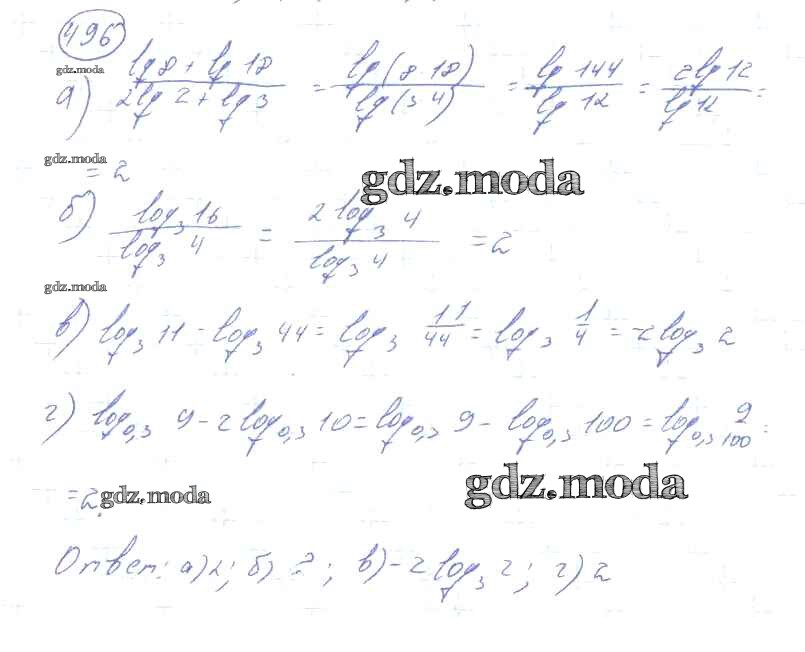 496
gdz.moda
а) (lg 8 + lg 18)/(2lg 2 + lg 3) = lg(8·18)/lg(3·4) = lg 144/lg 12 = 2lg 12/lg 12 =
gdz.moda
= 2
gdz.moda
б) log₃ 16/log₃ 4 = 2 log₃ 4/log₃ 4 = 2
gdz.moda
в) log₃ 11 - log₃ 44 = log₃ 11/44 = log₃ 1/4 = -2log₃ 2
г) log₀,₃ 9 - 2log₀,₃ 10 = log₀,₃ 9 - log₀,₃ 100 = log₀,₃ 9/100 =
= 2.
gdz.moda
gdz.moda
Ответ: а) 2; б) 2; в) -2log₃ 2; г) 2